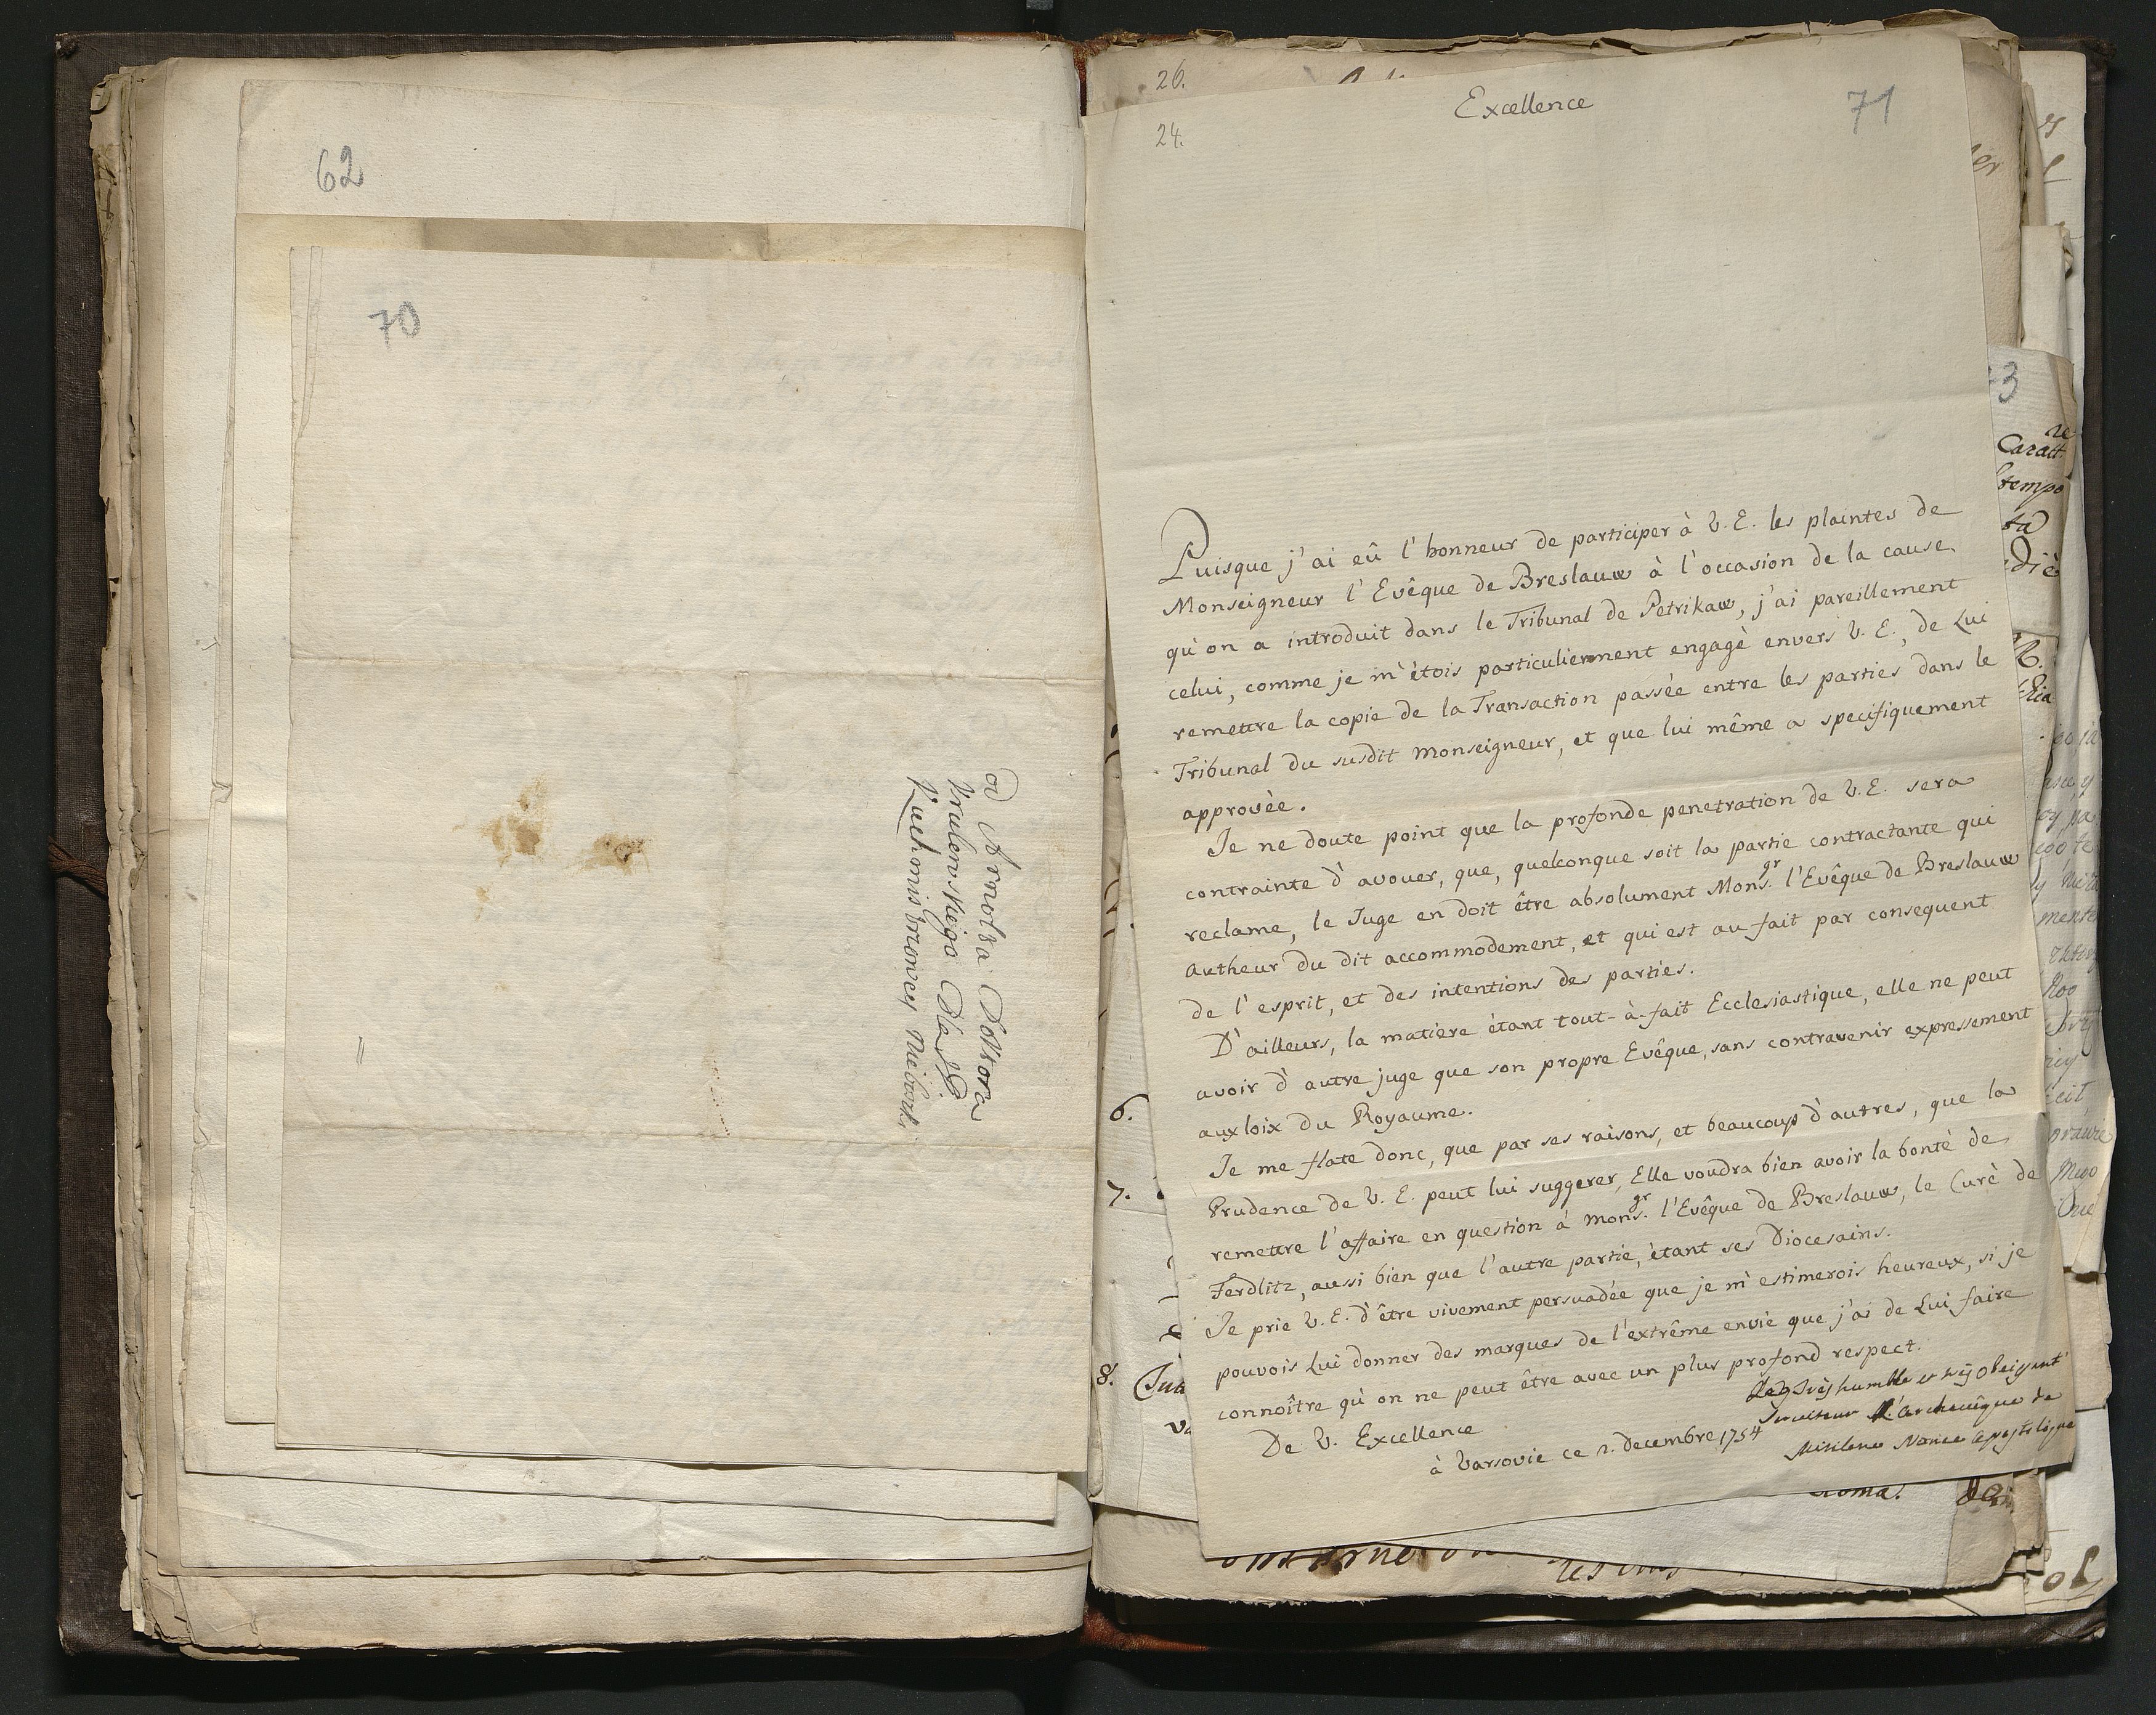 62
70
od Arnolda Doktora
Wrulewskiego dla JP.
26.
24.
Excellence
71
Puisque j'ai eû l'honneur de participer à V. E. les plaintes de
Monseigneur l'Evêque de Breslauw à l'occasion de la cause
qu'on a introduit dans le Tribunal de Petrikaw, j'ai pareillement
celui, comme je m'étois particulierement engagè envers V. E., de Lui
remettre la copie de la Transaction passée entre les parties dans le
Tribunal du susdit Monseigneur, et que lui même a specifiquement
approuèe.
Je ne doute point que la profonde penetration de V. E. sera
contrainte d'avouer, que, quelconque soit la partie contractante qui
reclame, le Juge en doit être absolument Mons.gr l'Evêque de Breslauw
Autheur du dit accommodement, et qui est au fait par consequent
de l'esprit, et des intentions des parties.
D'ailleurs, la matière étant tout-à-fait Ecclesiastique, elle ne peut
avoir d'autre juge que son propre Evêque, sans contravenir expressement
aux loix du Royaume.
Je me flate donc, que par ses raisons, et beaucoup d'autres, que la
Prudence de V. E. peut lui suggerer, Elle voudra bien avoir la bontè de
remettre l'affaire en question à Mons.gr l'Evêque de Breslauw, le Curè de
Ferdlitz, aussi bien que l'autre partie, ètant ses Diocesains.
Je prie V. E. d'être vivement persuadée que je m'estimerois heureux, si je
pouvois Lui donner des marques de l'extrême envie que j'ai de Lui faire
connoître qu'on ne peut être avec un plus profond respect.
De V. Excellence
à Varsovie ce 2. decembre 1754
Le très humble et très obeissant
Serviteur L'archevêque de
Mitilene Nonce Apostolique
6.
7.
8.
3
Caratt.re
tempo
ta
Roma.